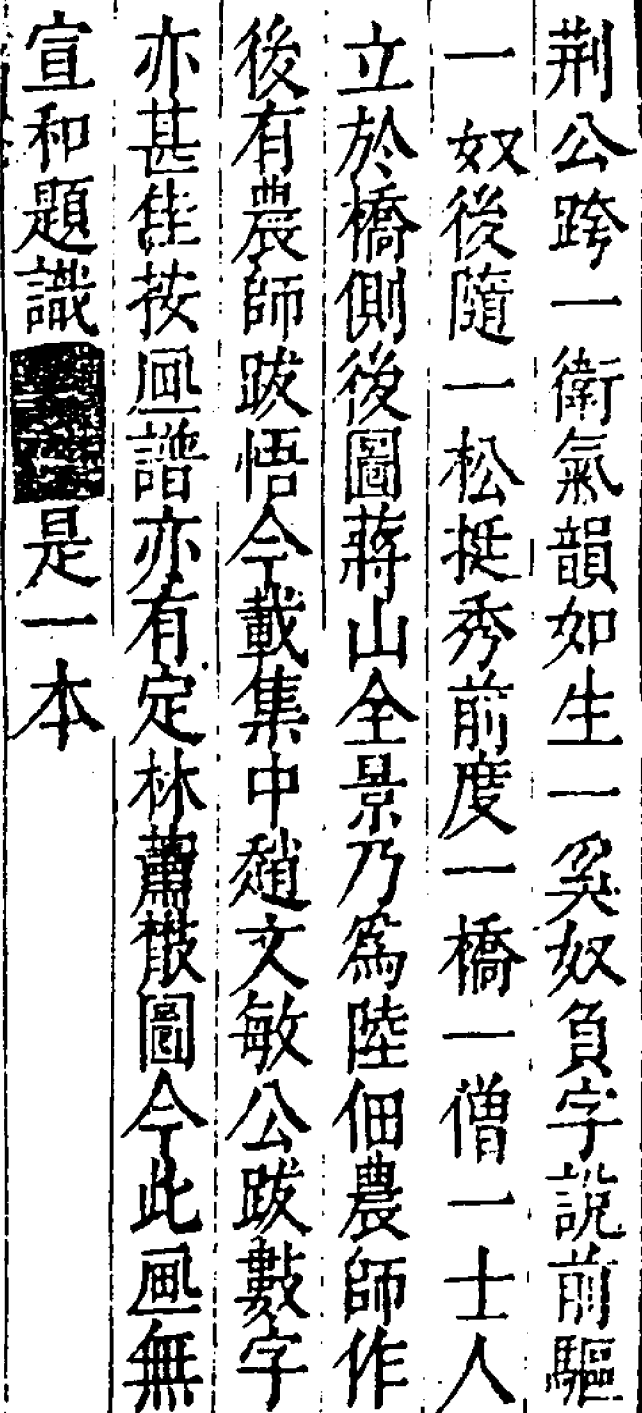 荆公跨一衛氣韻如生一奚奴負字說前驅
一奴後隨一松挺秀前度一橋一僧一士人
立於橋側後圖蔣山全景乃爲陸佃農師作
後有農師跋悟今載集中趙文敏公跋數字
亦甚佳按畫譜亦有定林蕭散圖今此畫無
宣和題識是一本